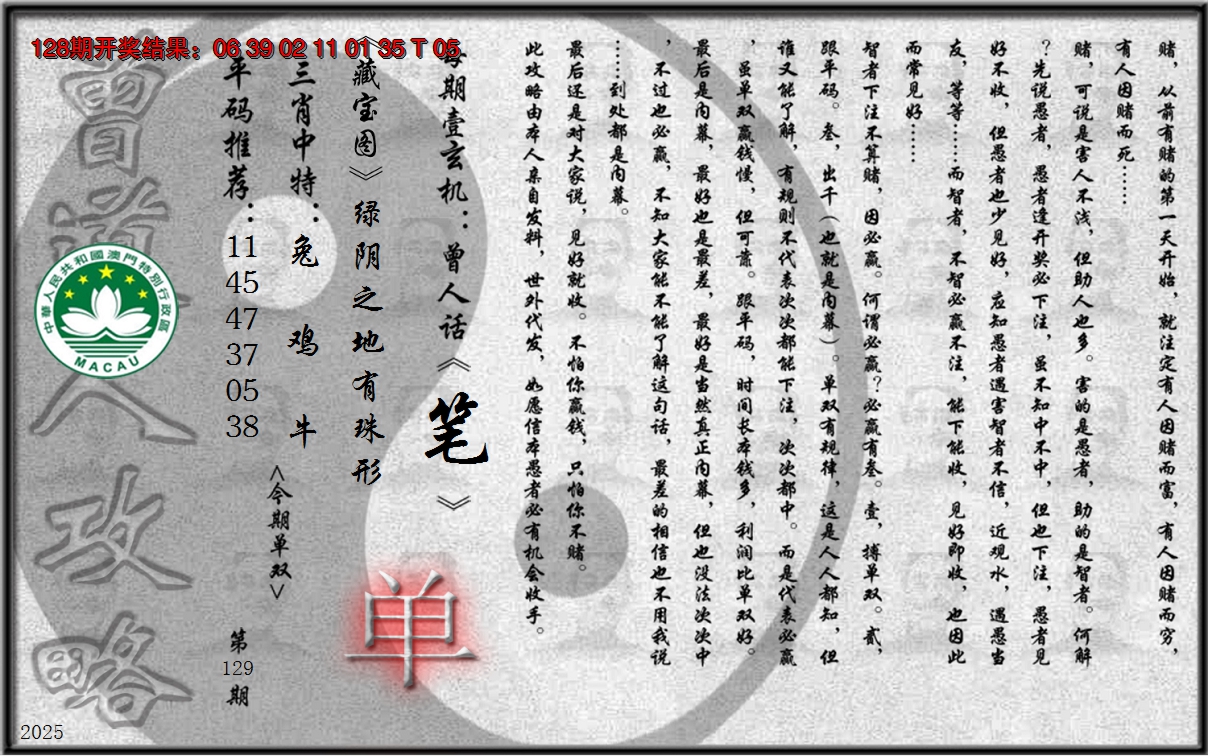 128期开奖结果：06 39 02 11 01 35 T 05
赌，从前有赌的第一天开始，就注定有人因赌而富，有人因赌而穷，
有人因赌而死……
赌，可说是害人不浅，但助人也多。害的是愚者，助的是智者。何解
？先说愚者，愚者逢开奖必下注，虽不知中不中，但也下注，愚者见
好不收，但愚者也少见好，应知愚者遇害智者不信，近观水，遇愚当
友，等等……而智者，不智必赢不注，能下能收，见好即收，也因此
而常见好……
智者下注不算赌，因必赢。何谓必赢？必赢有叁。壹，搏单双。贰，
跟平码。叁，出千（也就是内幕）。单双有规律，这是人人都知，但
谁又能了解，有规则不代表次次都能下注，次次都中。而是代表必赢
，虽单双赢钱慢，但可靠。跟平码，时间长本钱多，利润比单双好。
最后是内幕，最好也是最差，最好是当然真正内幕，但也没法次次中
，不过也必赢，不知大家能不能了解这句话，最差的相信也不用我说
……到处都是内幕。
最后还是对大家说，见好就收。不怕你赢钱，只怕你不赌。
此攻略由本人亲自发料，世外代发，如愿信本愚者必有机会收手。
每期壹玄机：曾人话《笔》
《藏宝图》绿阴之地有珠形
单
三肖中特：兔 鸡 牛
<今期单双>
平码推荐：11 45 47 37 05 38
第129期
曾道人攻略
中華人民共和國澳門特別行政區
MACAU
2025